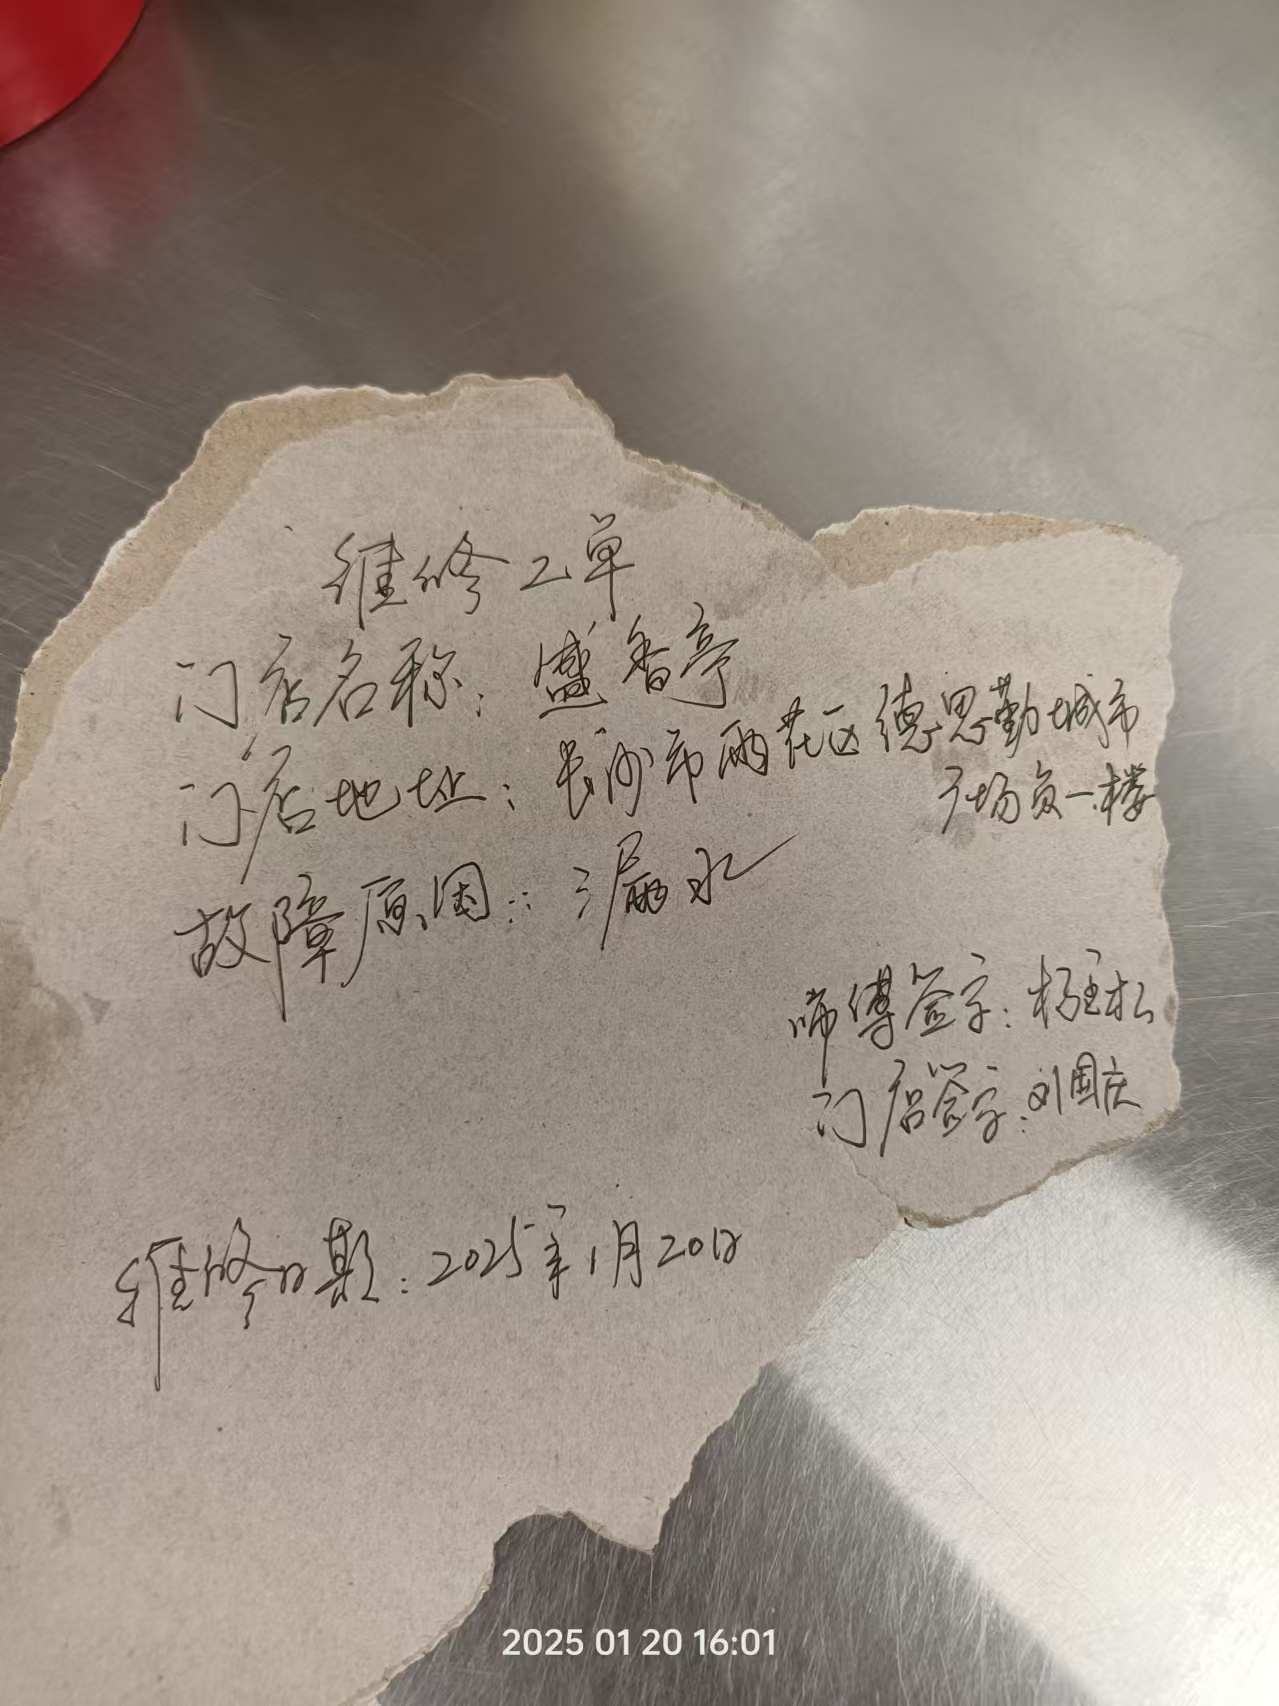 维修工单
门店名称：盛香亭
门店地址：长沙市雨花区德思勤城市
广场负一楼
故障原因：漏水
师傅签字：杨主松
门店签字：刘国庆
维修日期：2025年1月20日
2025 01 20 16:01